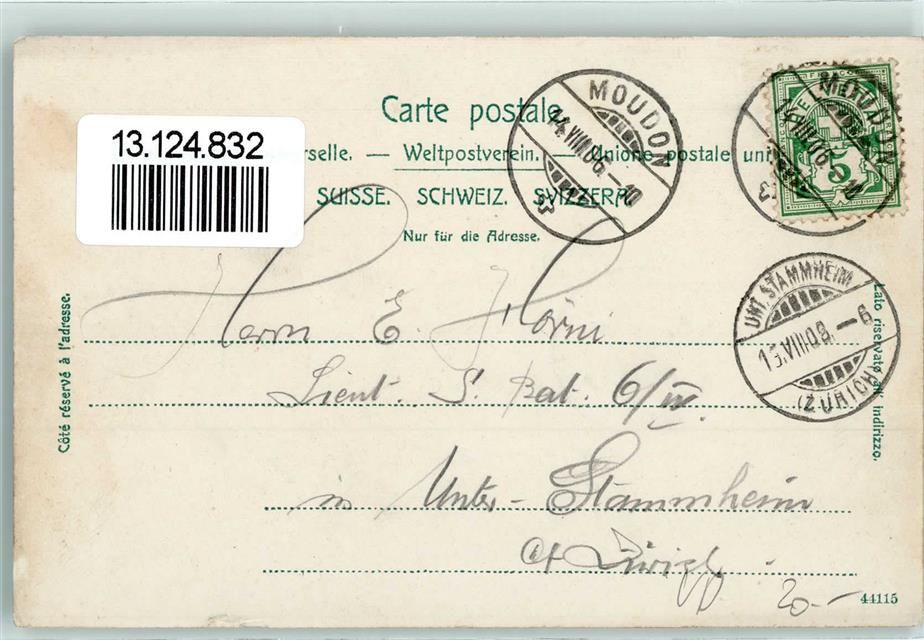 Carte postale.
13.124.832
erselle. — Weltpostverein. — Unione postale uni
SUISSE. SCHWEIZ. SVIZZERA
Nur für die Adresse.
MOUDON
14.VIII.06.-10
MOUDON
5
UNT. STAMMHEIM
15.VIII.06.-6
(ZÜRICH)
Côté réservé à l'adresse.
Lato riservato all' indirizzo.
Herrn E. Hörni
Lieut. S. Bat. 6/IV.
in Unter-Stammheim
Ct Zürich
20.-
44115